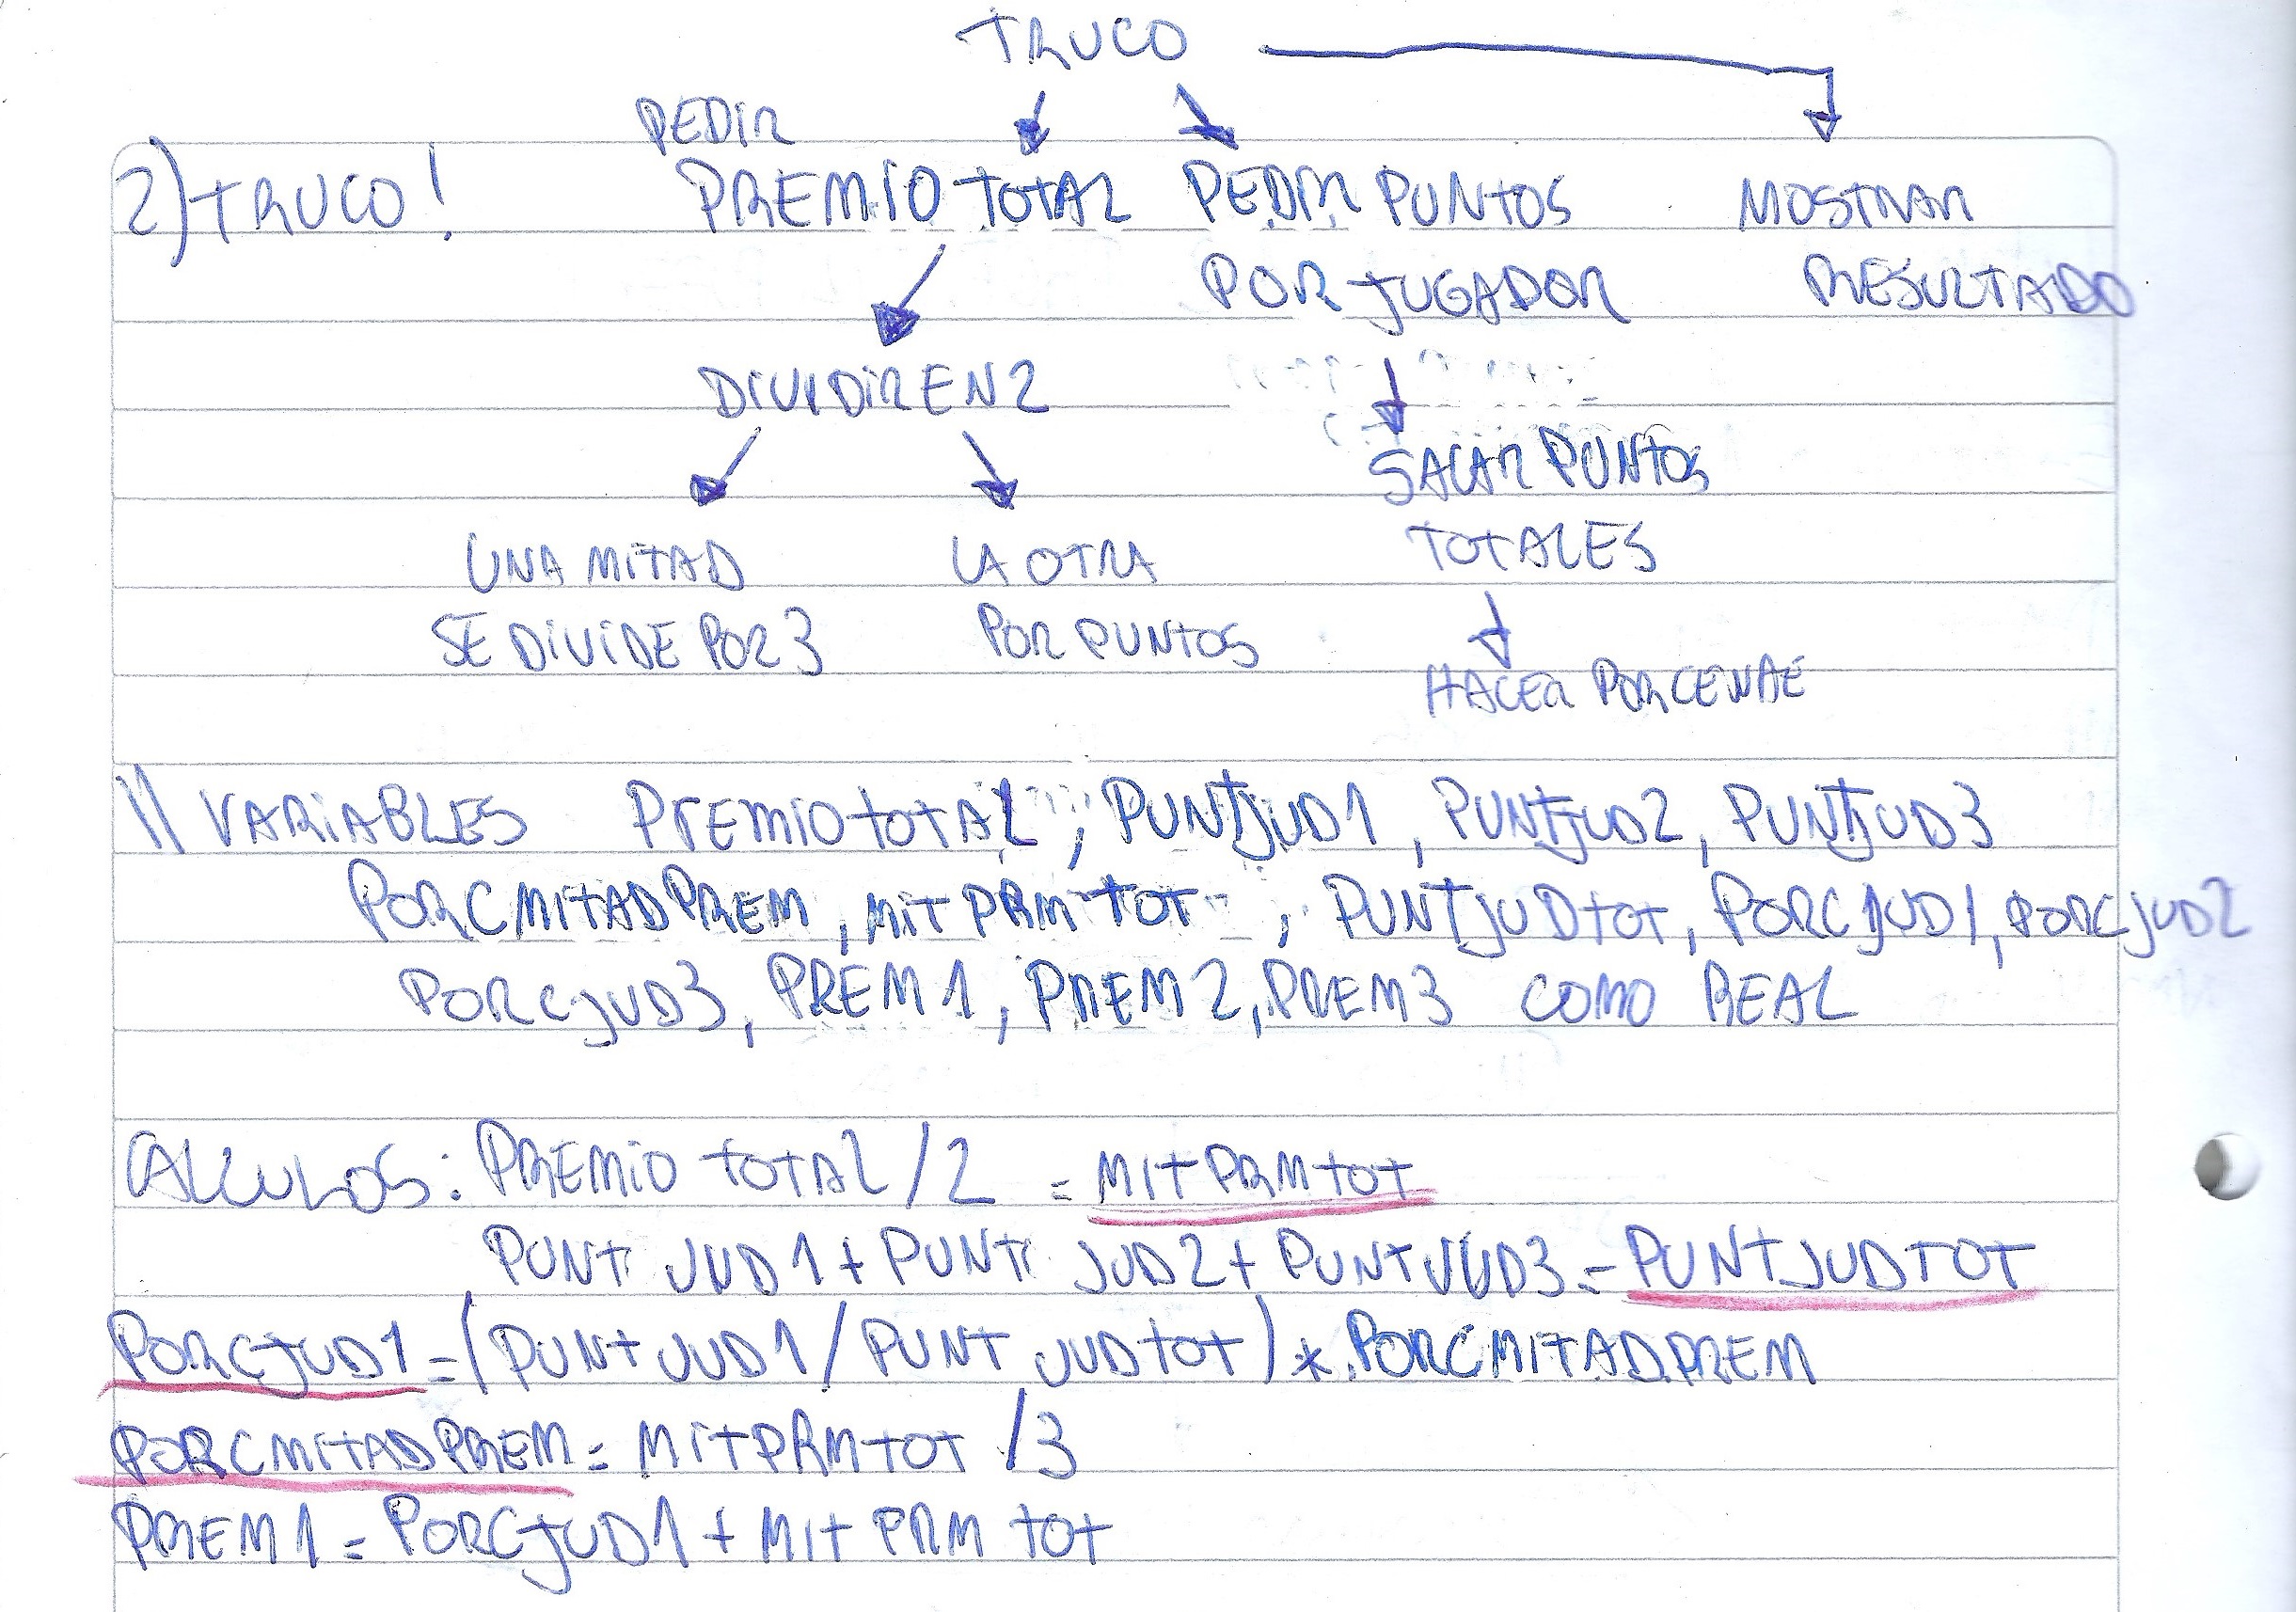 TRUCO
PEDIR
2) TRUCO! PREMIO TOTAL PEDIR PUNTOS MOSTRAR
POR JUGADOR RESULTADO
DIVIDIR EN 2
SACAR PUNTOS
UNA MITAD LA OTRA TOTALES
SE DIVIDE POR 3 POR PUNTOS
HACER
\\ VARIABLES PREMIOTOTAL, PUNTJUD1, PUNTJUD2, PUNTJUD3
PORCMITADPREM, MITPRMTOT, PUNTJUDTOT, PORCJUD1, PORCJUD2
PORCJUD3, PREM1, PREM2, PREM3 COMO REAL
CALCULOS: PREMIO TOTAL / 2 = MITPRMTOT
PUNT JUD1 + PUNT JUD2 + PUNTJUD3 = PUNTJUDTOT
PORCJUD1 = (PUNTJUD1 / PUNT JUDTOT) * PORCMITADPREM
PORCMITADPREM = MITPRMTOT / 3
PREM1 = PORCJUD1 + MIT PRM TOT